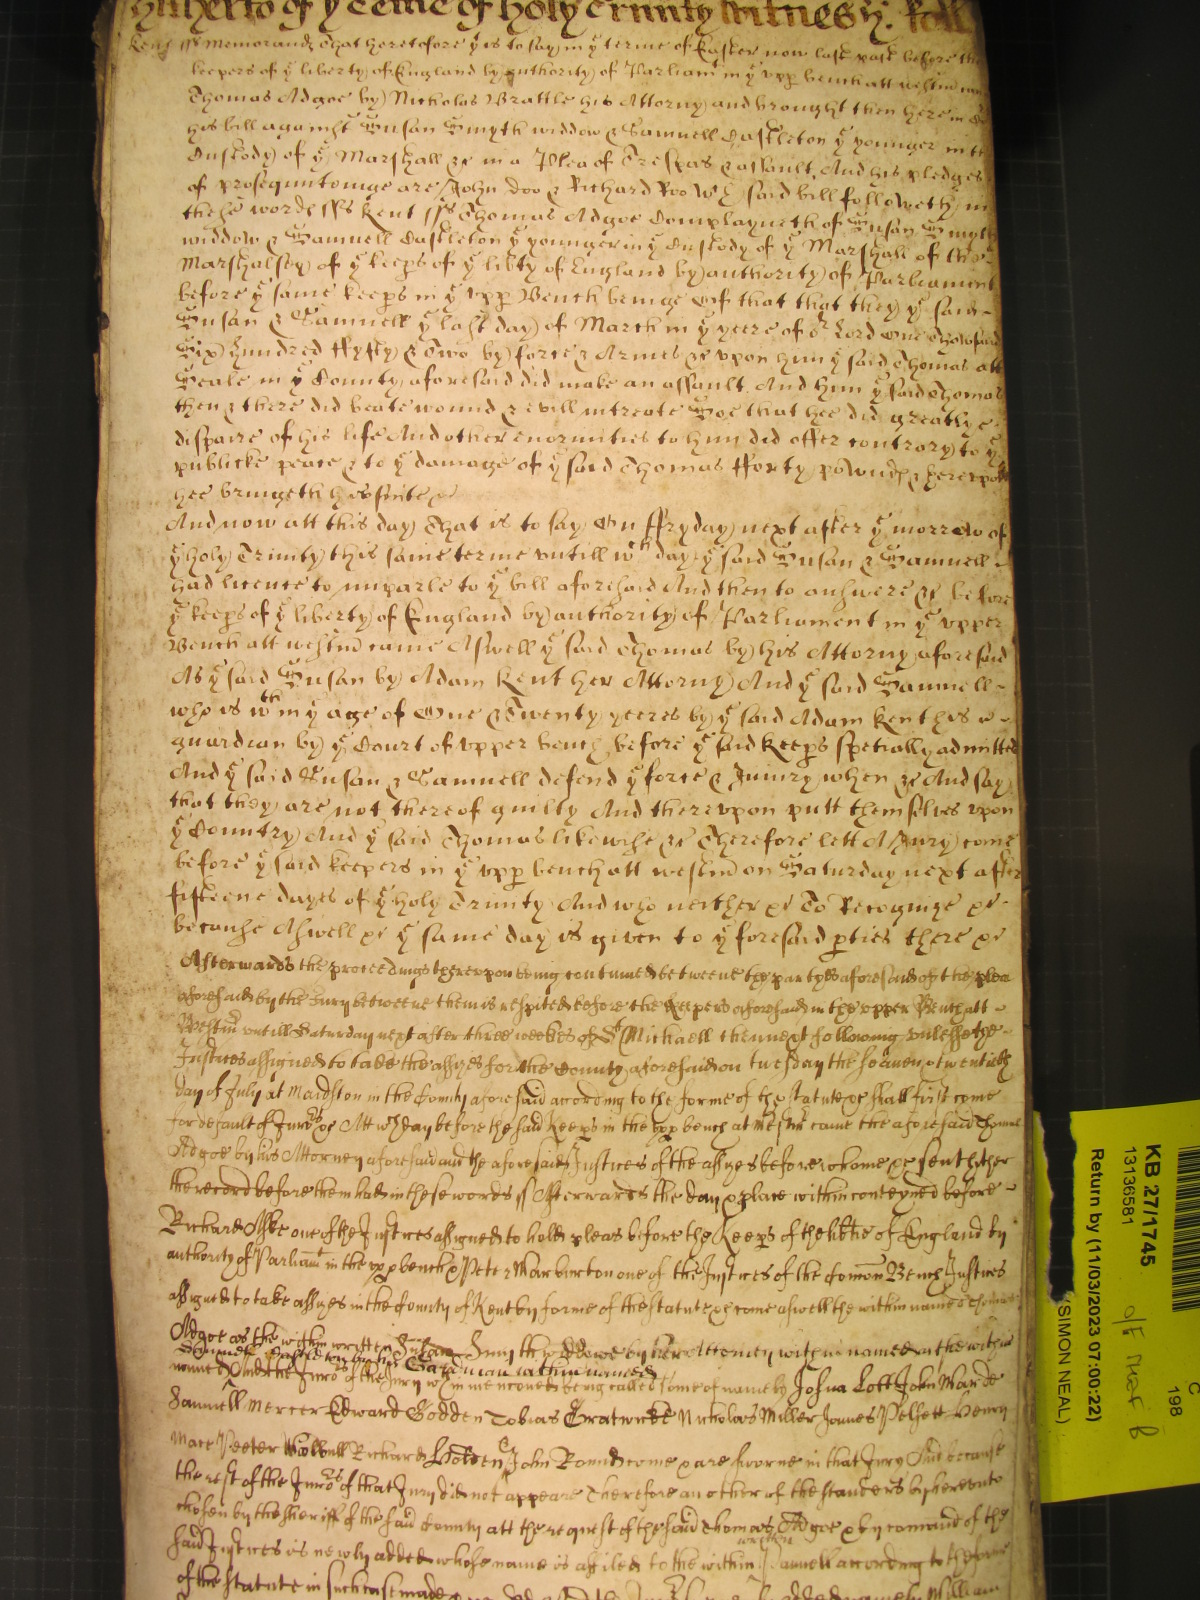 Hitherto of ye terme of holy Trinity Witnes ye Roll
Kent ss Memorand That heretofore yt is to say in ye terme of Easter now last past before the
keepers of ye liberty of England by authority of Parliamt in ye upp bench att westm came
Thomas Adgoe by Nicholas Brattle his Attorny and brought then here in
his bill against Susan Smyth widdow & Samuell Castleton ye younger in the
Custody of ye Marshall &c in a Plea of Trespas & assault, And his pledges
of prosequutoinge are John Doo & Richard Roo wch said bill followeth in
these words ss Kent ss Thomas Adgoe Complayneth of Susan Smyth
widdow & Samuell Castleton ye younger in ye Custody of ye Marshall of the
Marshalsey of ye keeps of ye libty of England by authority of Parliament
before ye same keeps in ye upp Bench beinge Of that that they ye said
Susan & Samuell ye last day of March in ye yeere of or Lord One Thowsand
Six hundred ffyfty & Two by force & Armes &c upon him ye said Thomas att
Seale in ye County aforesaid did make an assault. And him ye said Thomas
then & there did beate wound & evill intreate Soe that hee did greatly
dispaire of his life And other enormities to him did offer contrary to ye
publicke peace & to ye damage of ye said Thomas fforty pownds & hereupon
hee bringeth his suite &c
And now att this day That is to say On ffryday next after ye morrow of
ye holy Trinity this same terme untill wch day ye said Susan & Samuell
had licence to imparle to ye bill aforesaid And then to answere &c before
ye keeps of ye liberty of England by authority of Parliament in ye upper
Bench att westm came Aswell ye said Thomas by his Attorny aforesaid
As ye said Susan by Adam Kent her Attorny And ye said Samuell
who is wthin ye age of One & Twenty yeeres by ye said Adam Kent his
guardian by ye Court of upper bench before ye said keeps specially admitted
And ye said Susan & Samuell defend ye force & Iniury when &c And say
that they are not thereof guilty And thereupon putt themselves upon
ye Country And ye said Thomas likewise &c Therefore lett A Jury come
before ye said keepers in ye upp bench att westm on Saturday next after
fifteene dayes of ye holy Trinity And who neither &c To Recognize &c
because Aswell &c ye same day is given to ye foresaid pties there &c
Afterwards the proceedings thereupon being continued betweene the partyes aforesaid of the plea
aforesaid by the Jury betweene them is respited before the keepers aforesaid in the upper Bench att
Westm untill Saturday next after three weekes of St Michaell then next following unlesse the
Justices assigned to take the assizes for the County aforesaid on tuesday the seaven & twentieth
day of July at Maidston in the County aforesaid according to the forme of the statute &c shall first come
for default of Jurors &c Att wch day before the said keeps in the upp bench at Westm came the aforesaid Thomas
Adgoe by his Attorney aforesaid and the aforesaid Justices of the assizes before whome &c sent hither
the record before them had in these words ss Afterwards the day & place within conteyned before
Richard Aske one of the Justices assigned to hold pleas before the keeps of the libtie of England by
authority of Parliamt in the upp bench & Peter Warburton one of the Justices of the Comon Bench Justices
assigned to take assizes in the County of Kent by forme of the statute &c come aswell the within named Thomas
Adgoe as the within written Susan Smyth widdowe by her Attorney within named as the within
Samuell Castleton by his Gardian within named
named And the Jurors of the Jury wherof within mencon is being called some of namely Joshua Lott John Warde
Samuell Mercer Edward Godden Tobias Cratwicke Nicholas Miller James Pelsett Henry
Mace Peeter Richard Holden John Round come & are sworne in that Jury And because
the rest of the Jurors of that Jury did not appeare Therefore another of the standers by hereunto
chosen by the sheriff of the said County att the request of the said Thomas Adgoe & by comand of the
said Justices is newly added whose name is affiled to the within written Pannell according to the forme
of the statute in such case made
KB 27/1745
13136581
Return by (11/03/2023 07:00:22)
(SIMON NEAL)
C
198